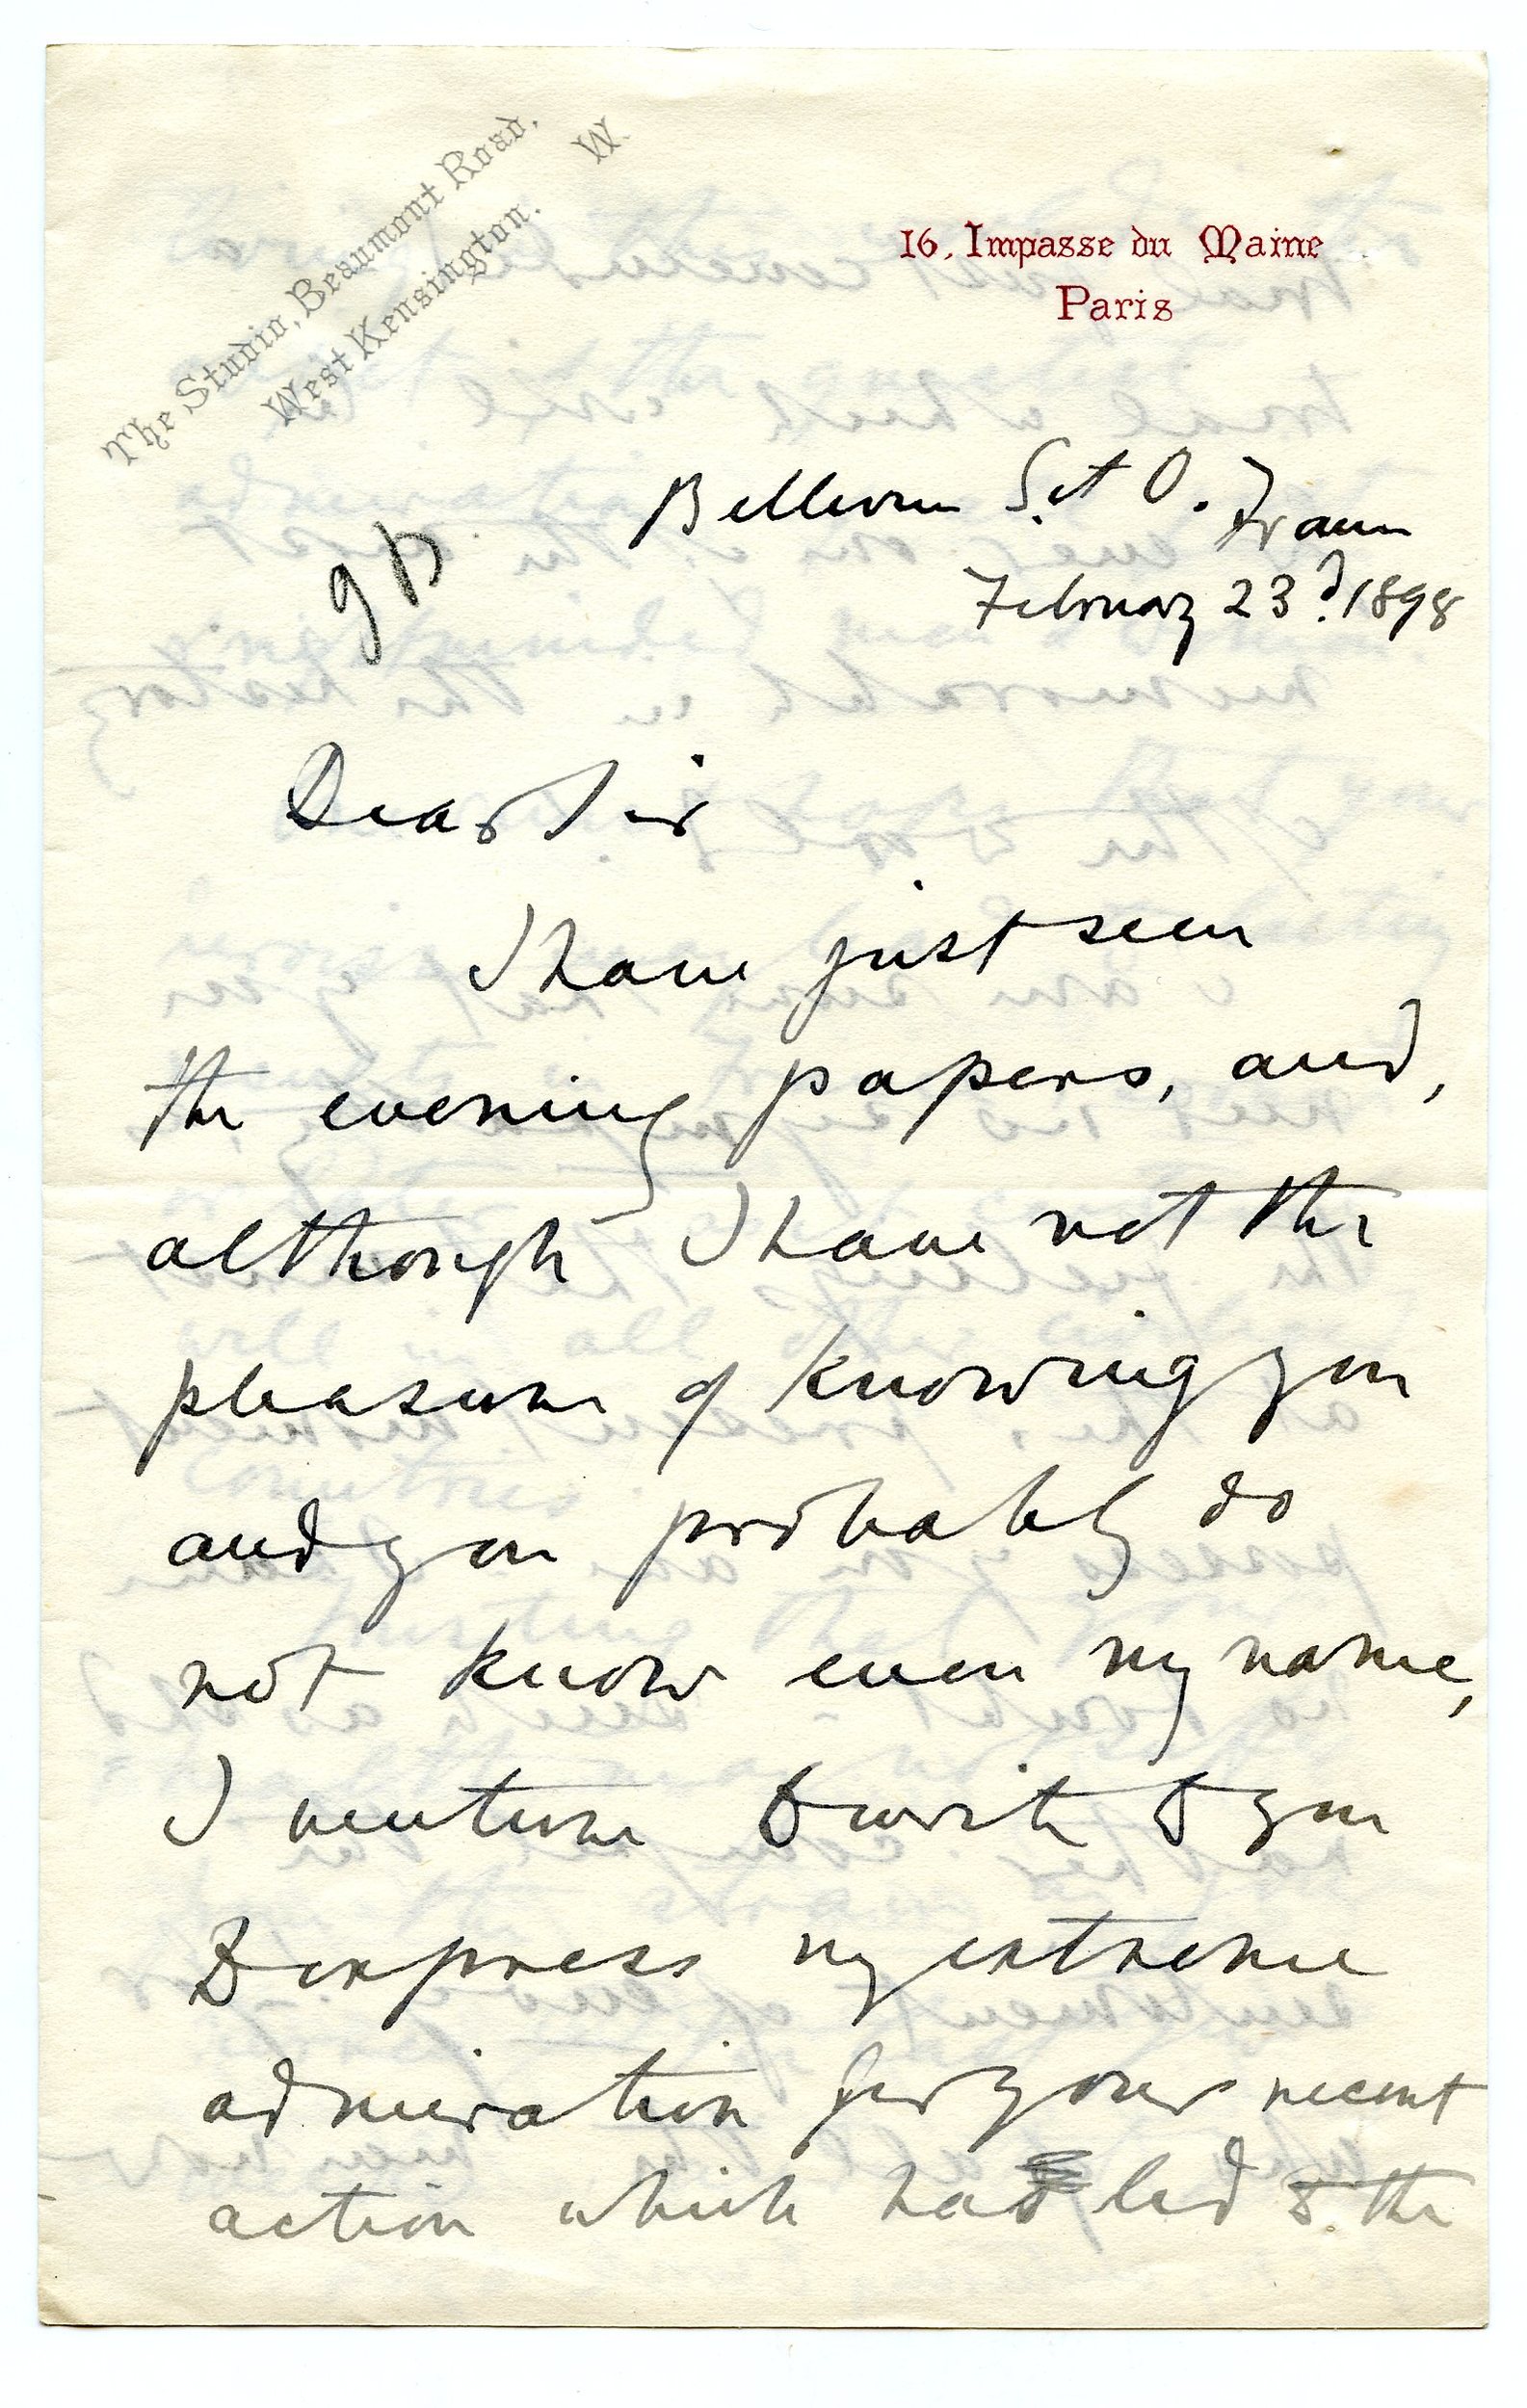 The Studio, Beaumont Road,
West Kensington. W.
16, Impasse du Maine
Paris
Bellevue S. et O. France
February 23d. 1898
Dear Sir
I have just seen
the evening papers, and,
although I have not the
pleasure of knowing you
and you probably do
not know even my name,
I venture to write to you
to express my extreme
admiration for your recent
action which has led to the